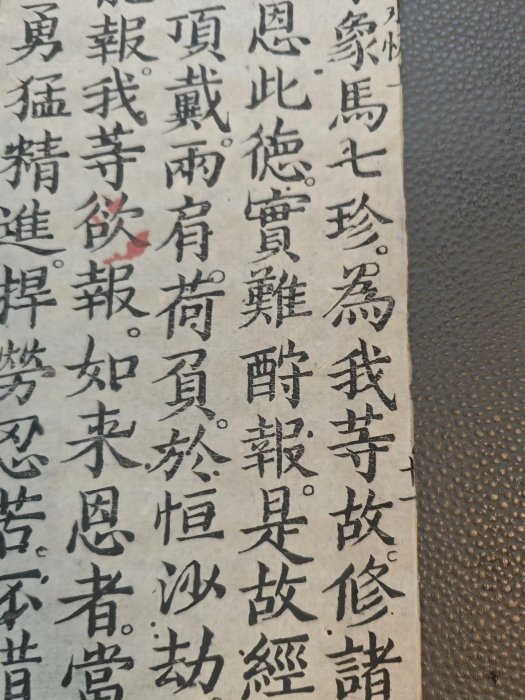 象馬七珍。為我等故。修諸
恩此德。實難酧報。是故經
頂戴。兩肩。荷負。於恒沙劫
能報。我等欲報。如来恩者。當
勇猛精進。捍勞忍苦。不惜